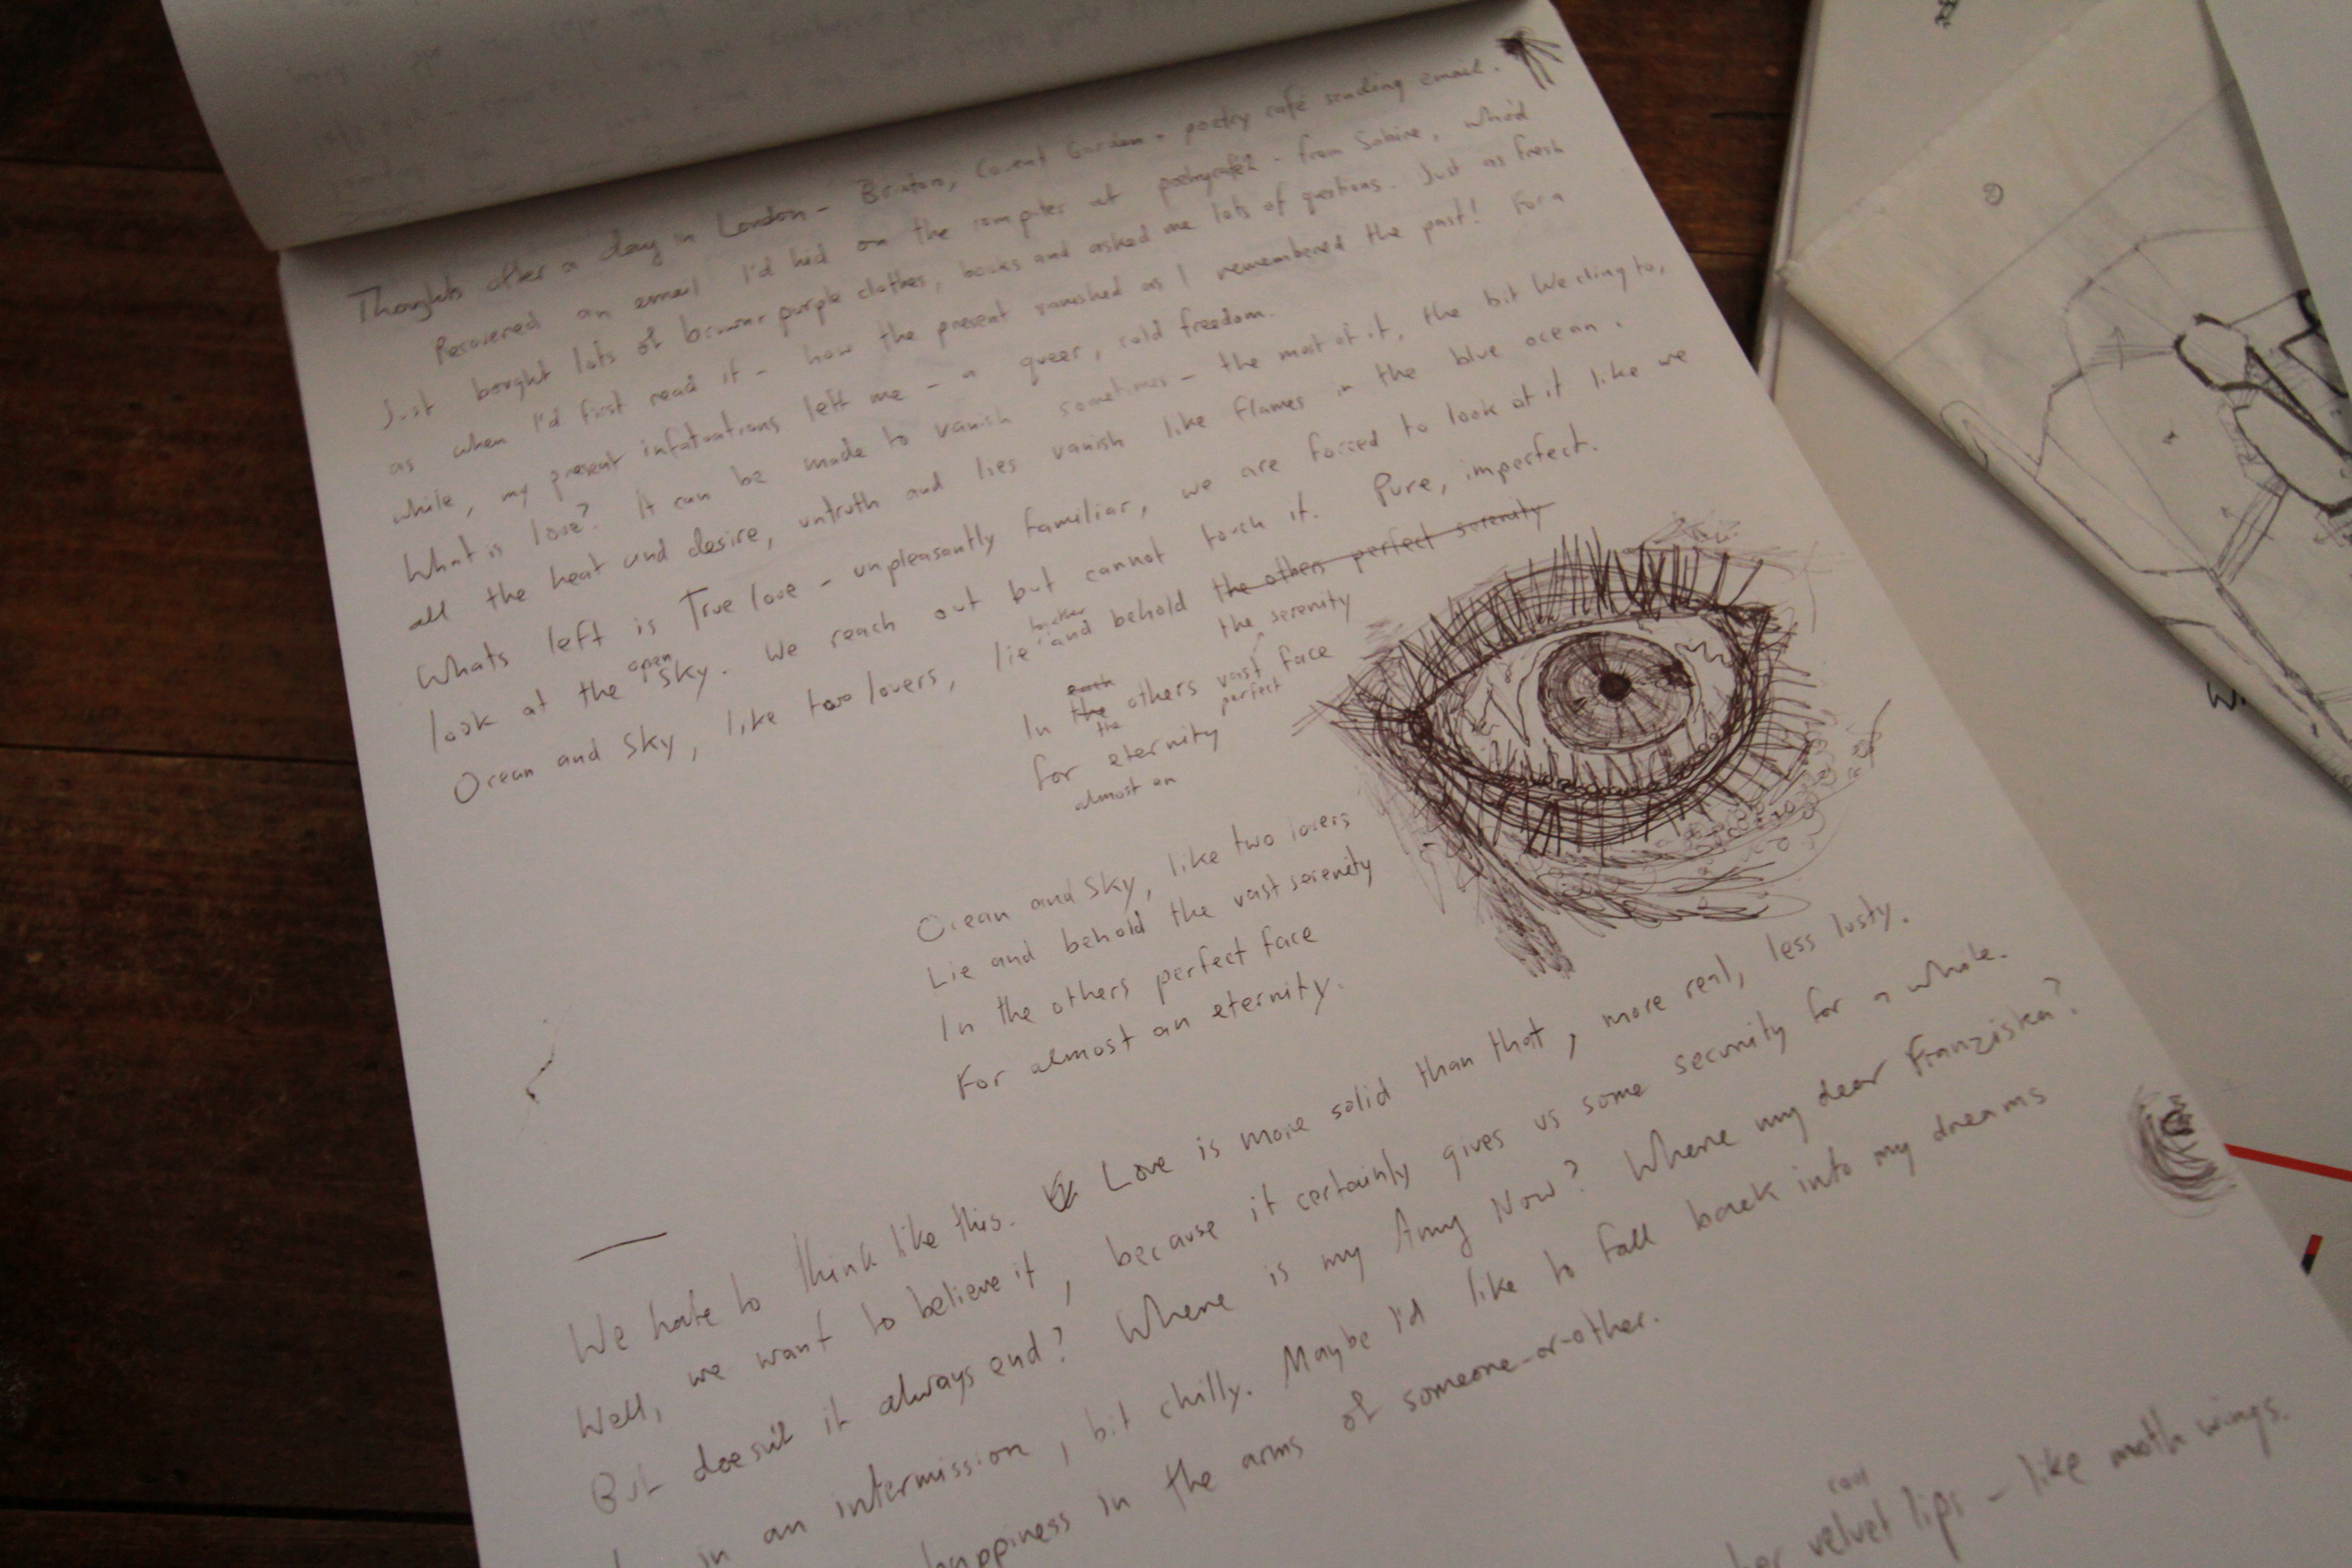 Thoughts after a day in London - Brixton, Covent Garden - poetry café sending email.
Recovered an email I'd hid on the computer at - from Sabine, who'd
Just bought lots of purple clothes, books and asked me lots of questions. Just as fresh
as when I'd first read it - how the present vanished as I remembered the past! For a
while, my present infatuations left me - a queer, cold freedom.
What is love? It can be made to vanish sometimes - the most of it, the bit We cling to,
all the heat and desire, untruth and lies vanish like flames in the blue ocean.
Whats left is True love - unpleasantly familiar, we are forced to look at it like we
look at the open sky. We reach out but cannot touch it. Pure, imperfect.
Ocean and Sky, like two lovers, lie together and behold the others perfect serenity
the serenity
In the each the others vast perfect face
for eternity
almost an
Ocean and Sky, like two lovers
Lie and behold the vast serenity
In the others perfect face
For almost an eternity.
We hate to think like this. Love is more solid than that, more real, less lusty.
Well, we want to believe it, because it certainly gives us some security for a while.
But doesn't it always end? Where is my Amy Now? Where my dear Franziska?
in an intermission, bit chilly. Maybe I'd like to fall back into my dreams
happiness in the arms of someone-or-other.
her cool velvet lips - like moth wings.